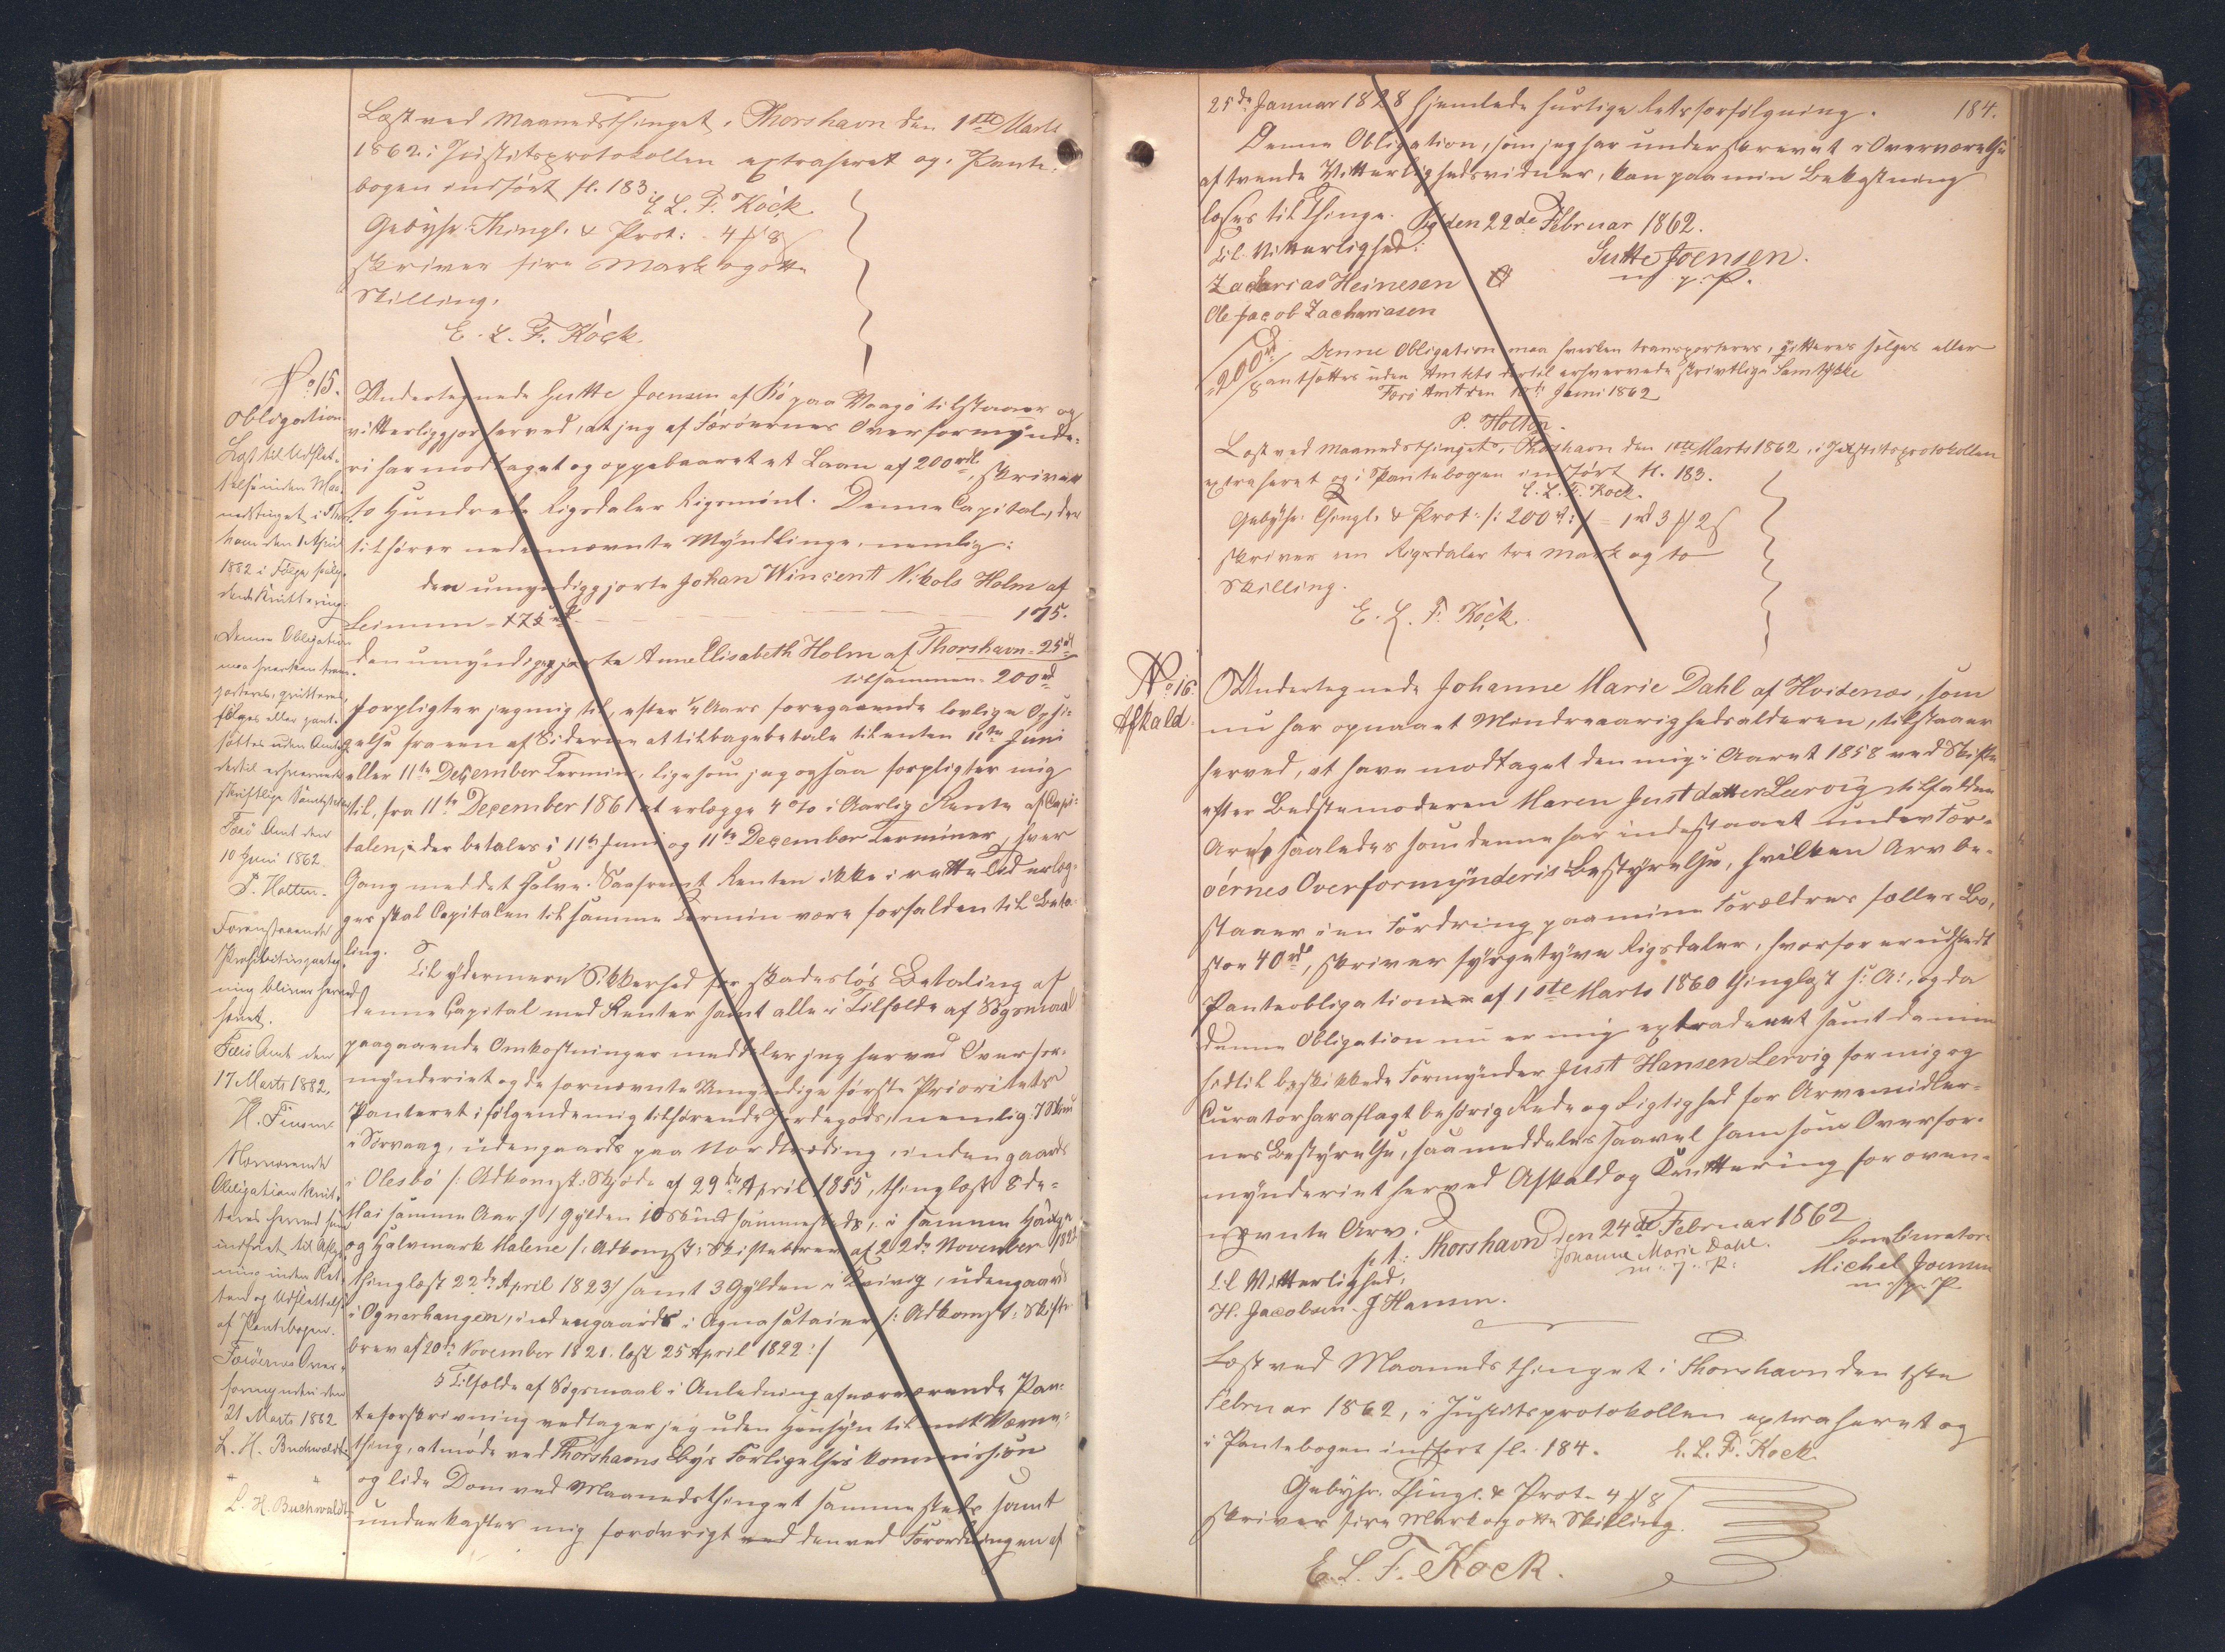 Læst ved Maanedsthinget i Thorshavn den 1ste Marts
1862 i Justitsprotokollen extraheret og i Pante-
bogen indført fl. 183.
E. L. F. Kock
Gebyhr: Thingl. & Prot: 4 ℔ 8 ß
skriver fire Mark og otte
Skilling.
E. L. F. Kock.
No 15.
Obligation
Læst til Udslet-
telse inden Maa-
nedstinget i Thors-
havn den 1 April
1882 i Følge følg-
ende Kvittering
"Denne Obligation
maa hverken trans-
porteres, qvitteres,
sælges eller pant-
sættes uden Amtets
dertil erhvervede
skriftlige Samtykke
Færø Amt den
10 Juni 1862.
P. Holten.
Foranstaaende
Prohibitivpaateg-
ning bliver herved
hævet.
Færø Amt den
17 Marts 1882.
H. Finsen.
Nærværende
Obligation kvit-
teres herved som
indfriet til Aflys-
ning inden Ret-
ten og Udslettelse
af Pantebogen.
Færøernes Over-
formynderi den
21 Marts 1882
L. H. Buchwaldt
L. H. Buchwaldt
Undertegnede Gutte Joensen af Bø paa Vaagø tilstaaer og
vitterliggjør herved, at jeg af Færøernes Overformynde-
ri har modtaget og oppebaaret et Laan af 200 rd, skriver
to Hundrede Rigsdaler Rigsmønt. Denne Capital, der
tilhører nedennævnte Myndlinge, nemlig:
den umyndiggjorte Johan Wincent Nikols Holm af
Leinum - 175 rd 175.
den umyndiggjorte Anne Elisabeth Holm af Thorshavn - 25 rd
tilsammen - 200 rd
forpligter jeg mig til, efter ½ Aars foregaaende lovlige Opsi-
gelse fra een af Siderne at tilbagebetale til enten 11te Juni
eller 11te December Termin, ligesom jeg ogsaa forpligter mig
til, fra 11te December 1861 at erlægge 4 % i Aarlig Rente af Capi-
talen, der betales i 11te Juni og 11te December Terminer, hver
Gang med det Halve. Saafremt Renten ikke i rette Tid erlæg-
ges skal Capitalen til samme Termin være forfalden til Beta-
ling.
Til ydermere Sikkerhed for skadesløs Betaling af
denne Capital med Renter samt alle i Tilfælde af Søgsmaal
paagaaende Omkostninger meddeler jeg herved Overfor-
mynderiet og de fornævnte Umyndige første Prioritets
Panteret i følgende mig tilhørende Jordegods, nemlig: 7 Skind
i Sørvaag, udengaards paa Nordtræding, indengaards
i Olesbø /: Adkomst: Skjøde af 29de April 1855, thinglæst 8de
Mai samme Aar :/ 1 Gylden 10 Skind sammesteds, i samme
og Halvmark Malene /: Adkomst: Skiftebrev af 22de November 1822
thinglæst 22de April 1823 :/ samt 3 Gylden i Kvivig, udengaards
i Ognarhangen, indengaards i Agnasutainer /: Adkomst: Skifte-
brev af 20de November 1821 læst 25 April 1822 :/
I Tilfælde af Søgsmaal i Anledning af nærværende Pan-
teforskrivning vedtager jeg uden Hensyn til mit Værne-
thing, at møde ved Thorshavns Byes Forligelses kommission
og lide Dom ved Maanedsthinget sammesteds, samt
underkaster mig forøvrigt ved den ved Forordningen af
184.
25de Januar 1828 hjemlede hurtige Retsforfølgning.
Denne Obligation, som jeg har underskrevet i Overværelse
af tvende Vitterlighedsvidner, kan paa min Bekostning
læses til Thinge. Bø den 22de Februar 1862.
Til Vitterlighed: Gutte Joensen.
Zacharias Heinesen m. p. P.
Ole Jacob Zachariasen
200 rd Denne Obligation maa hverken transporteres, qvitteres sælges eller
pantsættes uden Amtets dertil erhvervede skriftlige Samtykke
Færø Amt den 10de Juni 1862
P. Holten.
Læst ved Maanedsthinget i Thorshavn den 1ste Marts 1862, i Justitsprotokollen
extraheret og i Pantebogen indført fl. 183.
E. L. F. Kock.
Gebyhr: Thingl. & Prot: /: 200 rd :/ = 1 rd 3 ℔ 2 ß
skriver en Rigsdaler tre Mark og to
Skilling.
E. L. F. Kock.
No 16.
Afkald.
Undertegnede Johanne Marie Dahl af Hvidenæs, som
nu har opnaaet Mindreaarighedsalderen, tilstaaer
herved, at have modtaget den mig i Aaret 1858 ved Skifte
efter Bedstemoderen Maren Justdatter Lervig tilfaldne
Arv, saaledes som denne har indestaaet under Fær-
øernes Overformynderis Bestyrelse, hvilken Arv be-
staaer i en Fordring paa mine Forældres fælles Bo,
stor 40 rd, skriver fyrgetyve Rigsdaler, hvorfor er udstedt
Panteobligationen af 1ste Marts 1860 thinglæst s: A:, og da
denne Obligation nu er mig extraderet samt da min
hidtil beskikkede Formynder Just Hansen Lervig for mig og
Curator har aflagt behørig Rede og Rigtighed for Arvemidler-
nes Bestyrelse, saa meddeles saavel ham som Overfor-
mynderiet herved Afkald og Kvittering for oven-
nævnte Arv.
p. t. Thorshavn den 24de Februar 1862
Johanne Marie Dahl. Som Curator:
m. p. P. Michel Joensen
Til Vitterlighed: m. p. P.
H. Jacobsen. J Hansen.
Læst ved Maanedsthinget i Thorshavn den 1ste
Februar 1862, i Justitsprotokollen extraheret og
i Pantebogen indført fl. 184. E. L. F. Kock
Gebyhr. Thingl. & Prot. 4 ℔ 8 ß
skriver fire Mark og otte Skilling.
E. L. F. Kock.